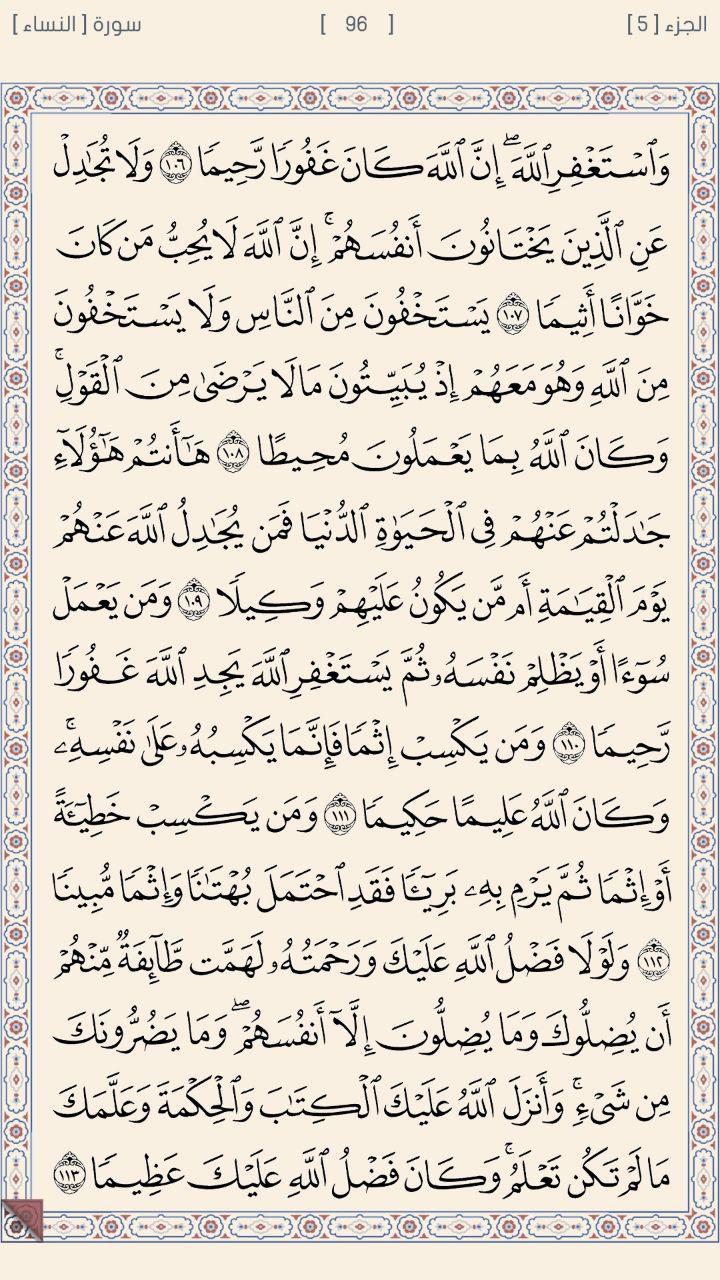 الجزء [ 5 ] [ 96 ] سورة [ النساء ]
وَٱسۡتَغۡفِرِ ٱللَّهَۖ إِنَّ ٱللَّهَ كَانَ غَفُورٗا رَّحِيمٗا ١٠٦ وَلَا تُجَٰدِلۡ
عَنِ ٱلَّذِينَ يَخۡتَانُونَ أَنفُسَهُمۡۚ إِنَّ ٱللَّهَ لَا يُحِبُّ مَن كَانَ
خَوَّانًا أَثِيمٗا ١٠٧ يَسۡتَخۡفُونَ مِنَ ٱلنَّاسِ وَلَا يَسۡتَخۡفُونَ
مِنَ ٱللَّهِ وَهُوَ مَعَهُمۡ إِذۡ يُبَيِّتُونَ مَا لَا يَرۡضَىٰ مِنَ ٱلۡقَوۡلِۚ
وَكَانَ ٱللَّهُ بِمَا يَعۡمَلُونَ مُحِيطًا ١٠٨ هَٰٓأَنتُمۡ هَٰٓؤُلَآءِ
جَٰدَلۡتُمۡ عَنۡهُمۡ فِي ٱلۡحَيَوٰةِ ٱلدُّنۡيَا فَمَن يُجَٰدِلُ ٱللَّهَ عَنۡهُمۡ
يَوۡمَ ٱلۡقِيَٰمَةِ أَم مَّن يَكُونُ عَلَيۡهِمۡ وَكِيلٗا ١٠٩ وَمَن يَعۡمَلۡ
سُوٓءًا أَوۡ يَظۡلِمۡ نَفۡسَهُۥ ثُمَّ يَسۡتَغۡفِرِ ٱللَّهَ يَجِدِ ٱللَّهَ غَفُورٗا
رَّحِيمٗا ١١٠ وَمَن يَكۡسِبۡ إِثۡمٗا فَإِنَّمَا يَكۡسِبُهُۥ عَلَىٰ نَفۡسِهِۦۚ
وَكَانَ ٱللَّهُ عَلِيمًا حَكِيمٗا ١١١ وَمَن يَكۡسِبۡ خَطِيٓـَٔةً
أَوۡ إِثۡمٗا ثُمَّ يَرۡمِ بِهِۦ بَرِيٓـٔٗا فَقَدِ ٱحۡتَمَلَ بُهۡتَٰنٗا وَإِثۡمٗا مُّبِينٗا
١١٢ وَلَوۡلَا فَضۡلُ ٱللَّهِ عَلَيۡكَ وَرَحۡمَتُهُۥ لَهَمَّت طَّآئِفَةٞ مِّنۡهُمۡ
أَن يُضِلُّوكَ وَمَا يُضِلُّونَ إِلَّآ أَنفُسَهُمۡۖ وَمَا يَضُرُّونَكَ
مِن شَيۡءٖۚ وَأَنزَلَ ٱللَّهُ عَلَيۡكَ ٱلۡكِتَٰبَ وَٱلۡحِكۡمَةَ وَعَلَّمَكَ
مَا لَمۡ تَكُن تَعۡلَمُۚ وَكَانَ فَضۡلُ ٱللَّهِ عَلَيۡكَ عَظِيمٗا ١١٣